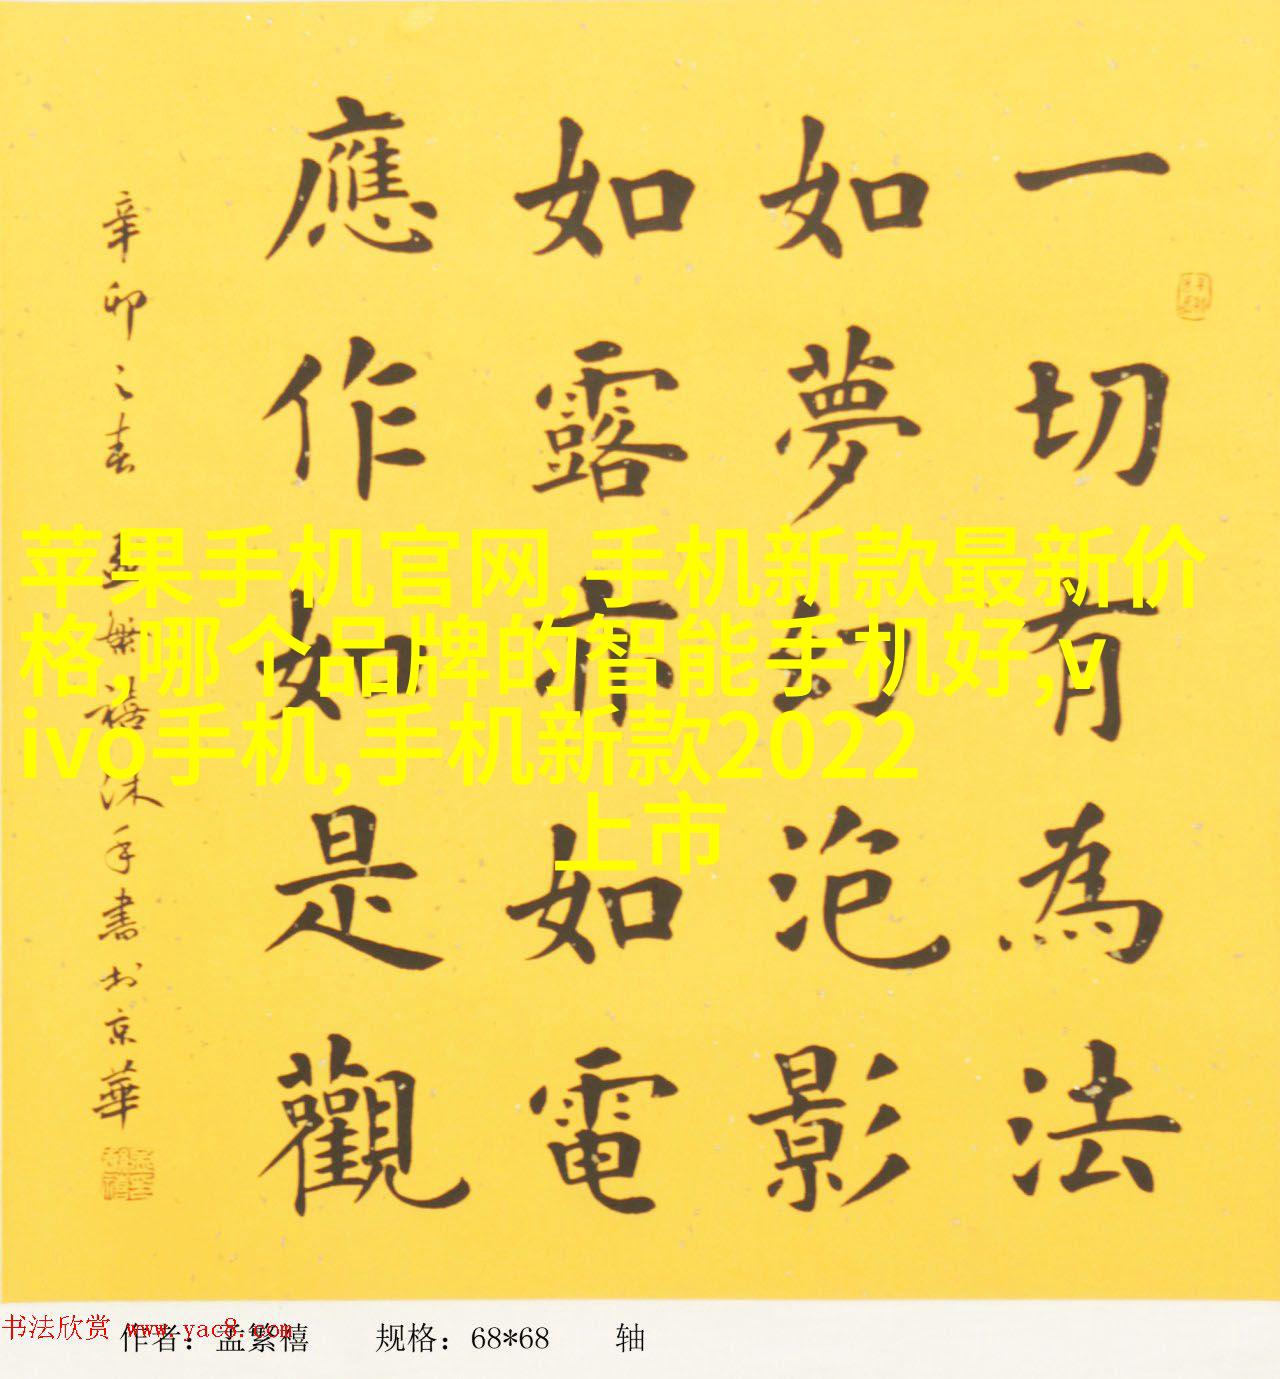 一切有為法
如夢幻泡影
如露亦如電
應作如是觀
辛卯之春 孟繁禧沐手書於京華
苹果手机官网,手机新款最新价
格,哪个品牌的智能手机好,v
ivo手机,手机新款2022
上市
书法欣赏 www.yac8.com
作者：孟繁禧 规格：68*68 轴